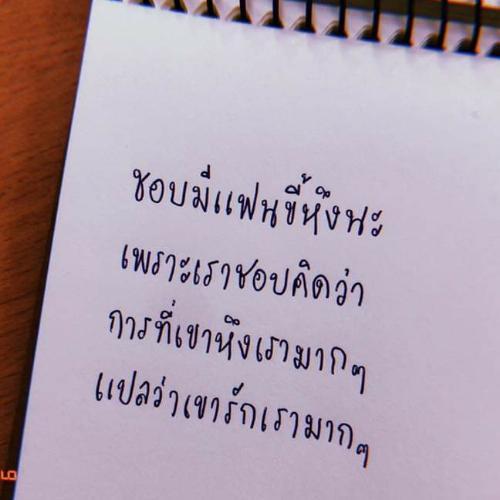 ชอบมีแฟนขี้หึงนะ
เพราะเราชอบคิดว่า
การที่เขาหึงเรามากๆ
แปลว่าเขารักเรามากๆ